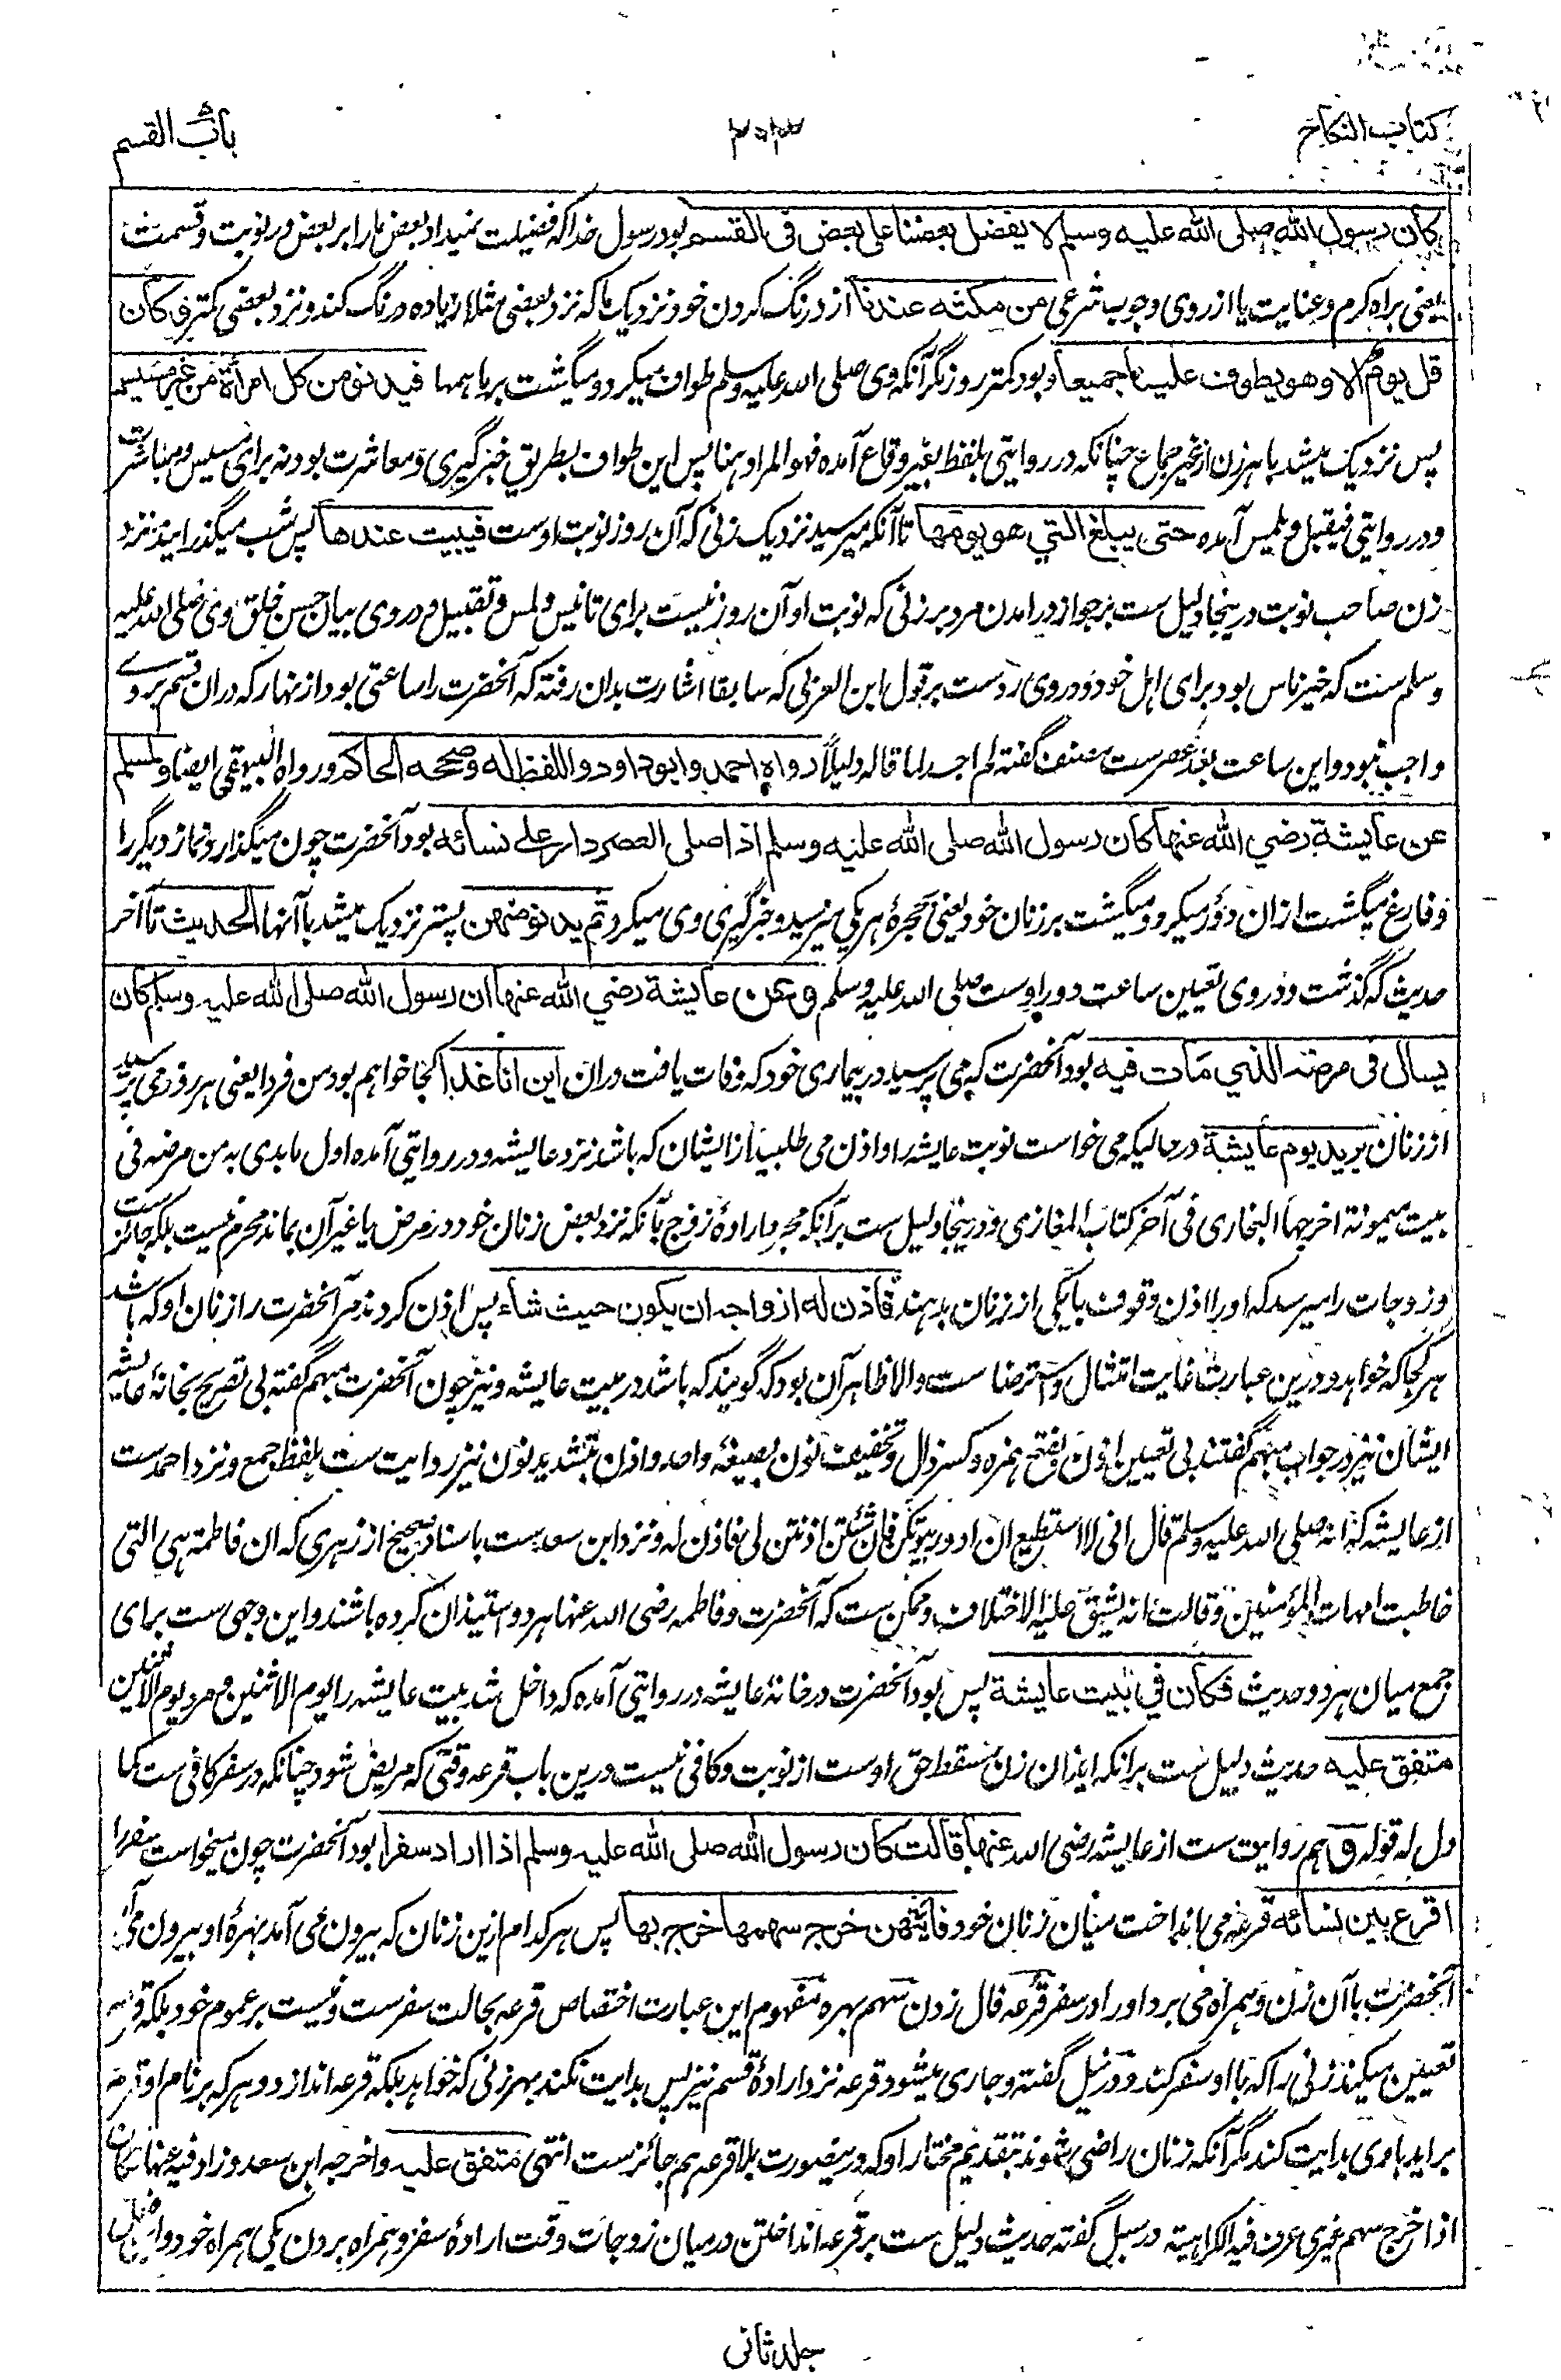 کتاب النکاح
باب القسم
کان رسول الله صلی الله علیه وسلم لا یفضل بعضنا علی بعض فی القسم بود رسول خدا که فضیلت نمیداد بعض ما را بر بعض در نوبت و قسمت
یعنی براه کرم و عنایت یا از روی وجوب شرعی من مکثه عندنا از درنگ کردن خود نزدیک ما که نزد بعضی مثلا زیاده درنگ کند و نزد بعضی کمتر و کان
قل یوم الا وهو یطوف علینا جمیعا و بود کمتر روز مگر آنکه وی صلی الله علیه وسلم طواف میکرد و میگشت بر ما همها فیدنو من کل امرأة من غیر مسیس
پس نزدیک میشد با هر زن از غیر جماع چنانکه در روایتی بلفظ بغیر وقاع آمده فهو المراد هنا پس این طواف بطریق خبرگیری و معاشرت بود نه برای مسیس و مباشرت
و در روایتی فیقبل و یلمس آمده حتی یبلغ التی هو یومها تا آنکه میرسید نزدیک زنی که آن روز نوبت اوست فیبیت عندها پس شب میگذرانید نزد
زن صاحب نوبت درینجا دلیل ست بر جواز درامدن مرد بر زنی که نوبت او آن روز نیست برای تانیس و لمس و تقبیل و در وی بیان حسن خلق وی صلی الله علیه
وسلم ست که خیر ناس بود برای اهل خود و در وی رد ست بر قول ابن العربی که سابقا اشارت بدان رفته که آنحضرت را ساعتی بود از نهار که دران قسم بر وے
واجب نبود و این ساعت بعد عصر ست مصنف گفته لم اجد لما قاله دلیلاً رواه احمد وابو داود واللفظ له وصححه الحاکم و رواه البیهقی ایضا ولمسلم
عن عایشة رضي الله عنها کان رسول الله صلی الله علیه وسلم اذا صلی العصر دار علی نسائه بود آنحضرت چون میگذارد نماز دیگر را
و فارغ میگشت ازان دور میکرد و میگشت بر زنان خود یعنی حجرۀ هر یکی میرسید و خبرگیری وی میکرد ثم یدنو منهن پستر نزدیک میشد با آنها الحدیث تا آخر
حدیث که گذشت و در وی تعیین ساعت دور اوست صلی الله علیه وسلم وعن عایشة رضي الله عنها ان رسول الله صلی الله علیه وسلم کان
یسال فی مرضه الذي مات فیه بود آنحضرت که می پرسید در بیماری خود که وفات یافت دران این انا غدا کجا خواهم بود من فردا یعنی هر روز می پرسید
از زنان یرید یوم عایشة در حالیکه می خواست نوبت عایشه را و اذن می طلبید از ایشان که باشد نزد عایشه و در روایتی آمده اول ما بدی به من مرضه فی
بیت میمونة اخرجها البخاری فی آخر کتاب المغازی و درینجا دلیل ست بر آنکه مجرد ارادۀ زوج بآنکه نزد بعض زنان خود در مرض یا غیر آن بماند محرم نیست بلکه جائز ست
و زوجات را میرسد که او را اذن وقوف با یکی از زنان بدهند فاذن له ازواجه ان یکون حیث شاء پس اذن کردند مر آنحضرت را زنان او که باشد
هر کجا که خواهد و درین عبارت غایت امتثال و استرضا ست والا ظاهر آن بود که گویند که باشد در بیت عایشه و نیز چون آنحضرت مبهم گفته بی تصریح بخانۀ عایشه
ایشان نیز در جواب مبهم گفتند بی تعیین اذن بفتح همزه و کسر ذال و تخفیف نون بصیغۀ واحد و اذن بتشدید نون نیز روایت ست بلفظ جمع و نزد احمد ست
از عایشه که انه صلی الله علیه وسلم قال انی لا استطیع ان ادور بیوتکن فان شئتن اذنتن لی فاذن له و نزد ابن سعد ست باسناد صحیح از زهری که ان فاطمة هی التی
خاطبت امهات المؤمنین و قالت انه یشق علیه الاختلاف و ممکن ست که آنحضرت و فاطمه رضی الله عنها هر دو استیذان کرده باشند و این وجهی ست برای
جمع میان هر دو حدیث فکان في بیت عایشة پس بود آنحضرت در خانۀ عایشه در روایتی آمده که داخل شد بیت عایشه را یوم الاثنین و مرد یوم الاثنین
متفق علیه حدیث دلیل ست برانکه ایذان زن مسقط حق اوست از نوبت و کافی نیست درین باب قرعه وقتی که مریض شود چنانکه در سفر کافی ست کما
دل له قوله و هم روایت ست از عایشه رضی الله عنها قالت کان رسول الله صلی الله علیه وسلم اذا اراد سفرا بود آنحضرت چون میخواست سفر را
اقرع بین نسائه قرعه می انداخت میان زنان خود فایتهن خرج سهمها خرج بها پس هر کدام ازین زنان که بیرون می آمد بهرۀ او بیرون می آمد
آنحضرت با آن زن و همراه می برد او را در سفر قرعه فال زدن سهم بهره مفهوم این عبارت اختصاص قرعه بحالت سفر ست و نیست بر عموم خود بلکه قرعه
تعیین میکند زنی را که با او سفر کند و در نیل گفته و جاری میشود قرعه نزد ارادۀ قسم نیز پس بدایت نکند بهر زنی که خواهد بلکه قرعه اندازد و هر که بر نام او قرعه
براید با وی بدایت کند مگر آنکه زنان راضی شوند بتقدیم مختار او که درینصورت بلا قرعه هم جائز ست انتهی متفق علیه واخرجه ابن سعد و زاد فیه عنها فکان
اذا خرج سهم غیری عرف فیه الکراهیة در سبل گفته حدیث دلیل ست بر قرعه انداختن درمیان زوجات وقت ارادۀ سفر و همراه بردن یکی همراه خود و این
جلد ثانی